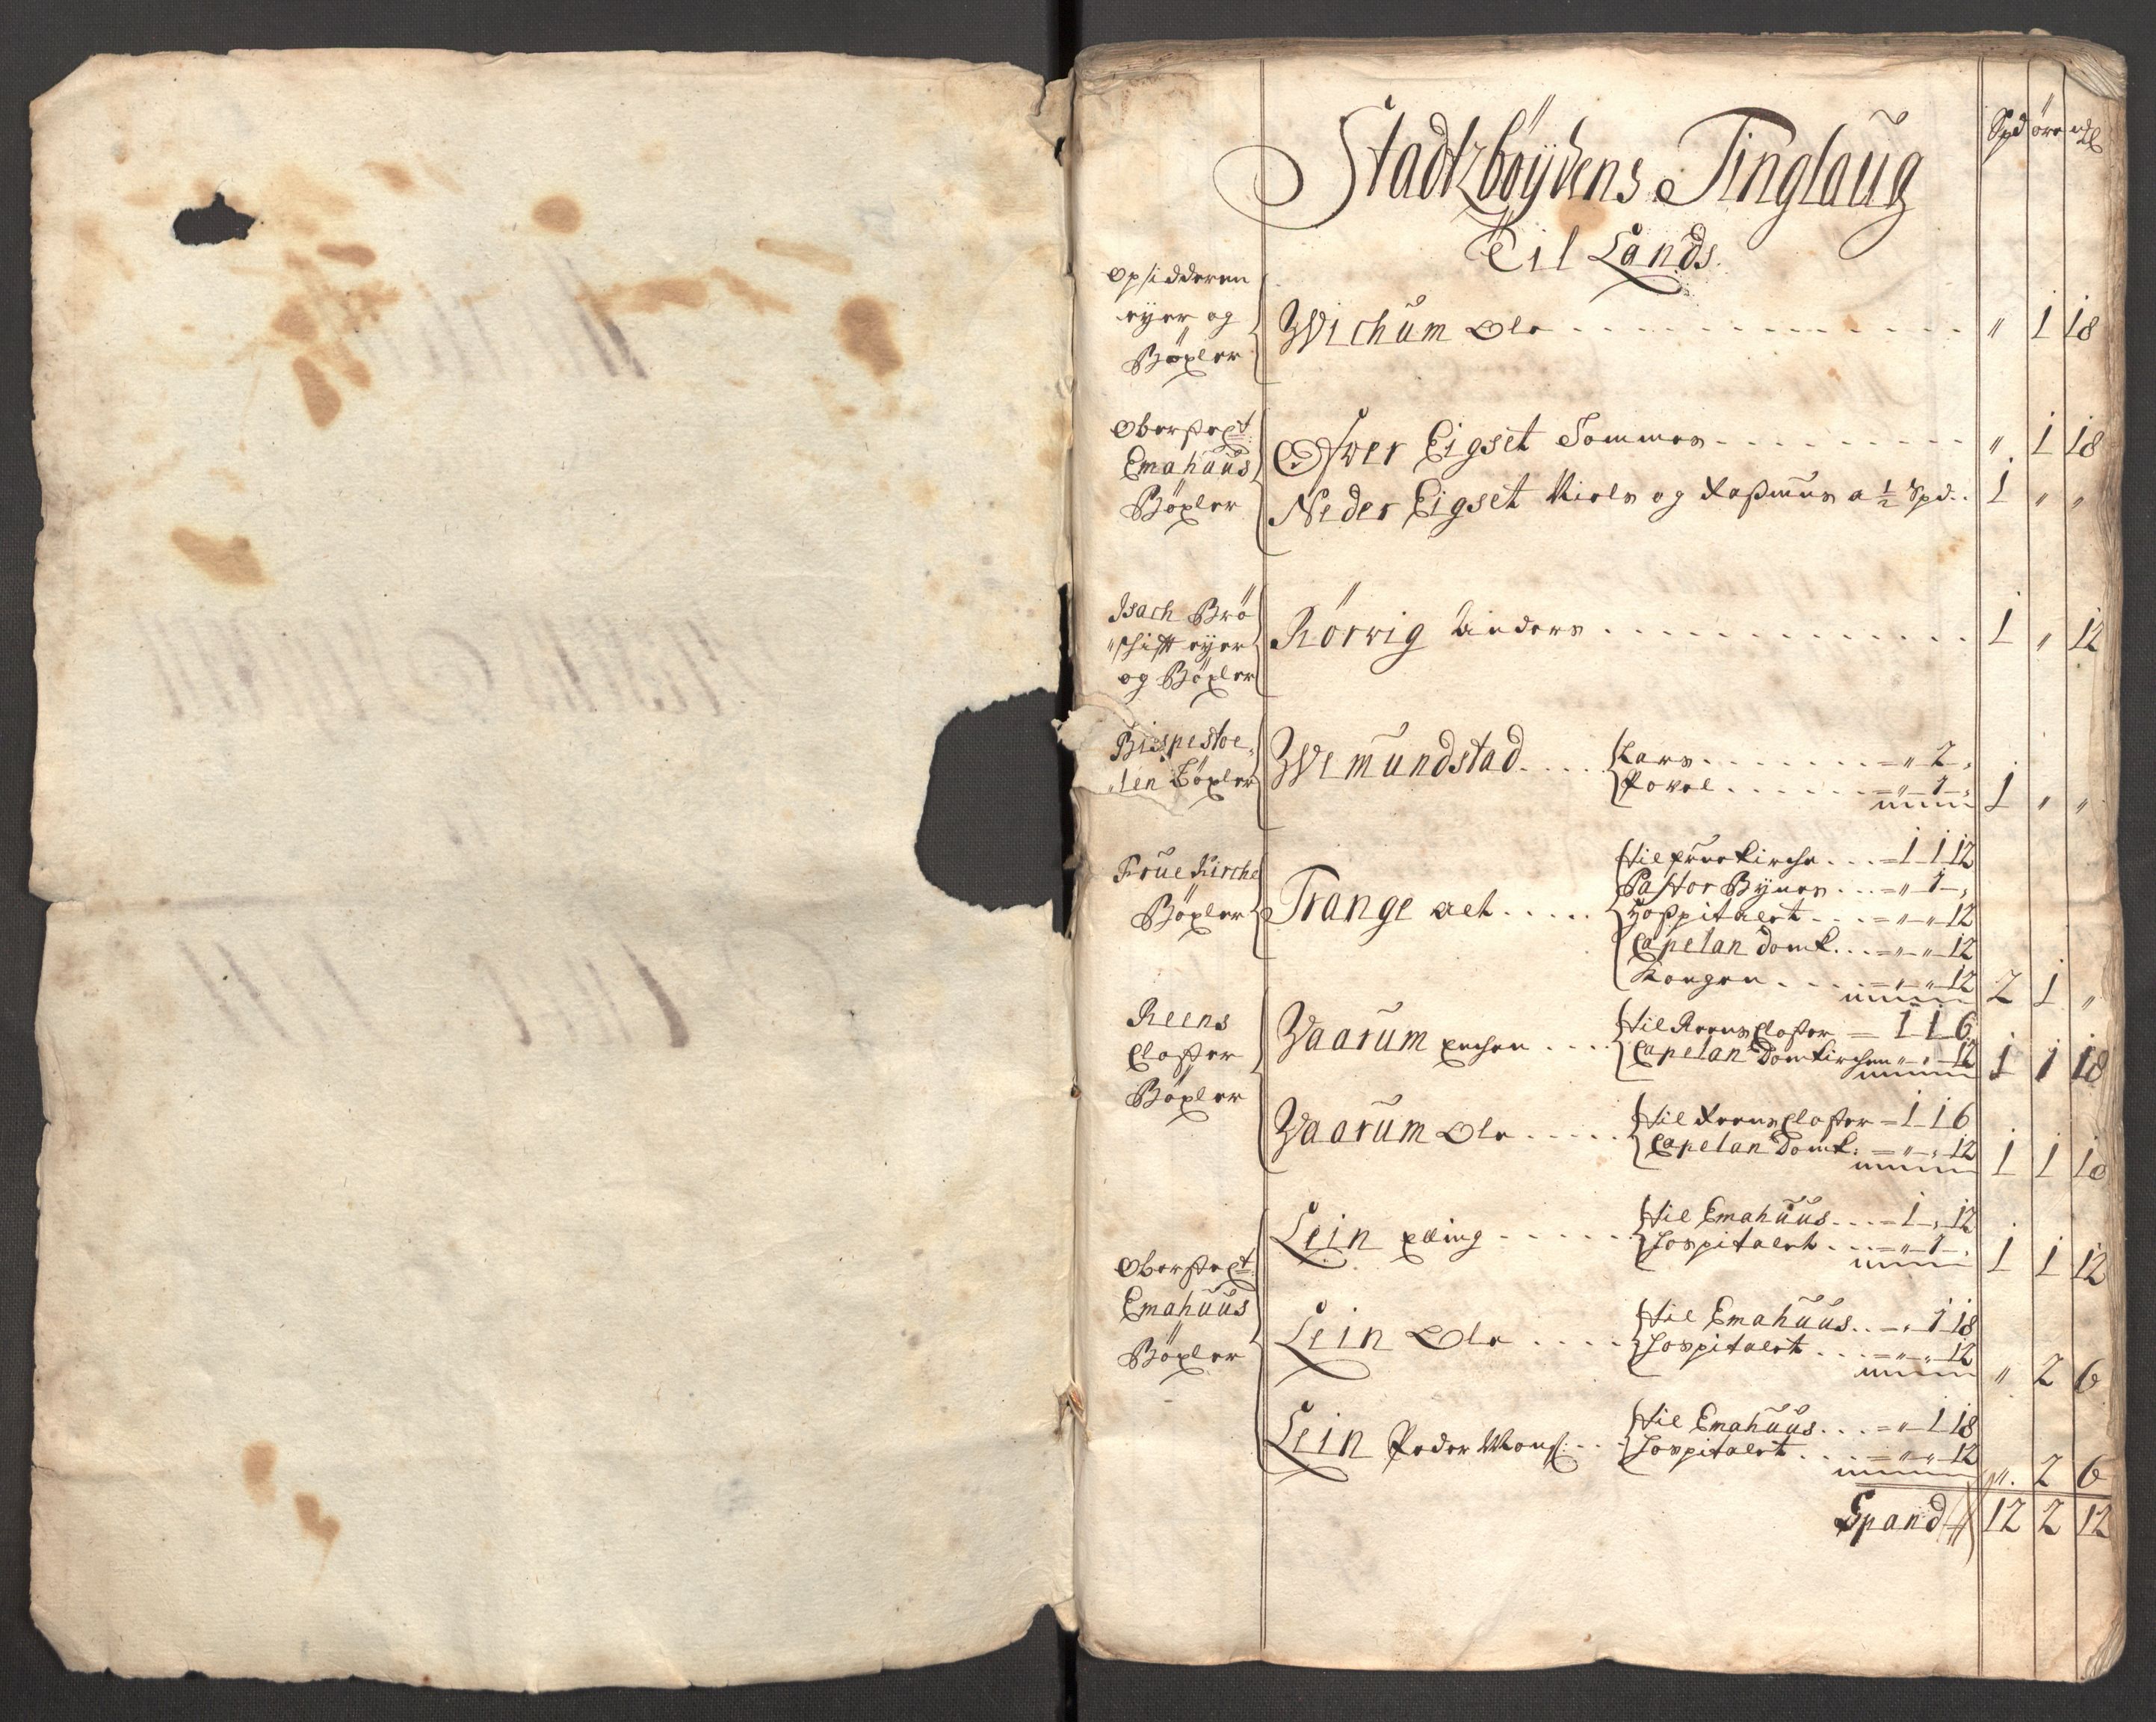 Spd öre mkl
Stadtzböÿdens Tinglaug
Til Lands
Opsidderen
eyer og
Böxler
Wichum Ole " 1 18
Oberste
Emahuus
Böxler
Öfwer Eigset Sommer " 1 18
Neder Eigset Niels og Rasmus a ½ Spd. 1 " "
Isach Brö
"schift eyer
og Böxler
Rörvig Anders 1 " 12
Bispestoe
"len Böxler
Wemundstad Lars = " 2 "
Povel = " 1 " 1 " "
Frue Kirche
Böxler
Trange til frue Kirche = 1 1 12
Pastor Bynes = " 1 "
Hospitalet = " " 12
Capelan Domk. = " " 12
Kongen = " " 12 2 1 "
Reens
Closter
Böxler
Vaarum til Reens Closter = 1 1 6
Capelan Domkirchen " " 12 1 1 18
Vaarum Ole til Reens Closter = 1 1 6
Capelan Domk: = " " 12 1 1 18
Oberste
Emahuus
Böxler
Lein Elling til Emahuus = 1 " 12
Hospitalet = " 1 " 1 1 12
Lein Ole til Emahuus = " 1 18
Hospitalet = " " 12 " 2 6
Lein Peder Mons: til Emahuus = " 1 18
Hospitalet = " " 12 " 2 6
Spand 12 2 12